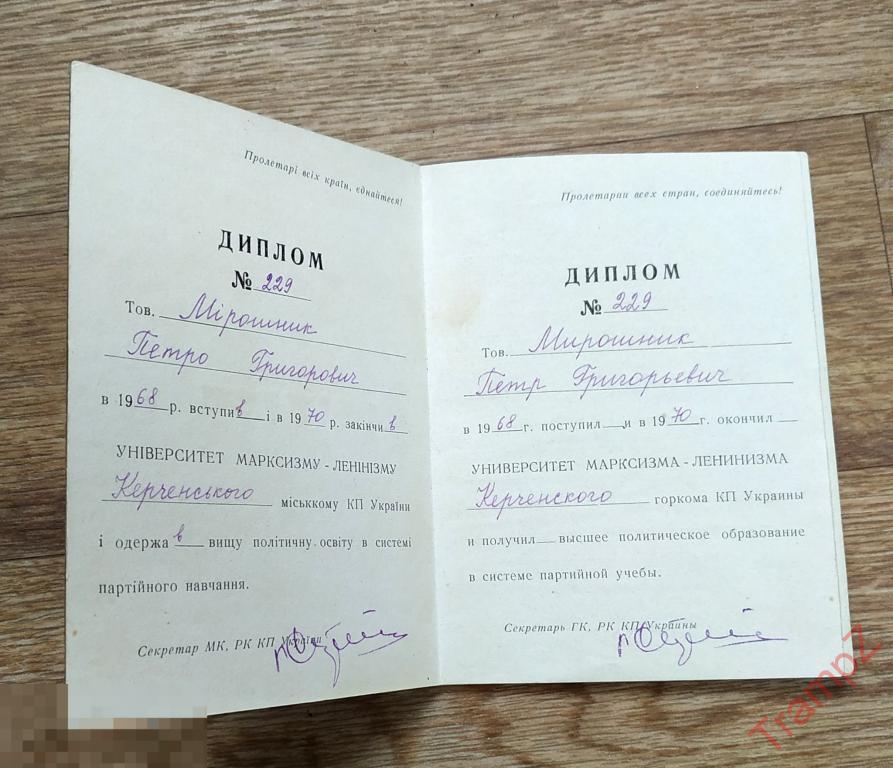 Пролетарі всіх країн, єднайтеся!
ДИПЛОМ
№ 229
Тов. Мірошник
Петро Григорович
в 1968 р. вступив і в 1970 р. закінчив
УНІВЕРСИТЕТ МАРКСИЗМУ - ЛЕНІНІЗМУ
Керченського міськкому КП України
і одержав вищу політичну освіту в системі
партійного навчання.
Секретар МК, РК КП України
Пролетарии всех стран, соединяйтесь!
ДИПЛОМ
№ 229
Тов. Мирошник
Петр Григорьевич
в 1968 г. поступил и в 1970 г. окончил
УНИВЕРСИТЕТ МАРКСИЗМА - ЛЕНИНИЗМА
Керченского горкома КП Украины
и получил высшее политическое образование
в системе партийной учебы.
Секретарь ГК, РК КП Украины
TrampZ